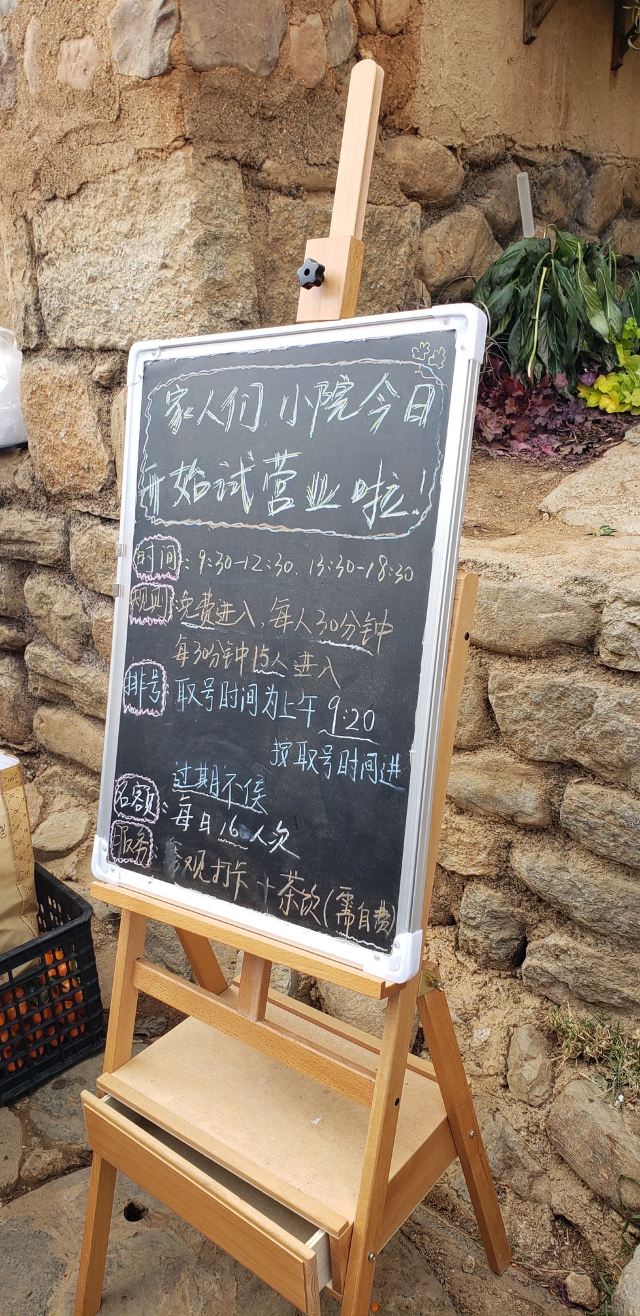 家人们,小院今日
开始试营业啦!
时间:9:30-12:30.13:30-18:30
规则:免费进入,每人30分钟
每30分钟15人进入
排号:取号时间为上午9:20
按取号时间进
过期不侯
名额:每日16 人次
服务:参观打卡+茶饮(需自费)